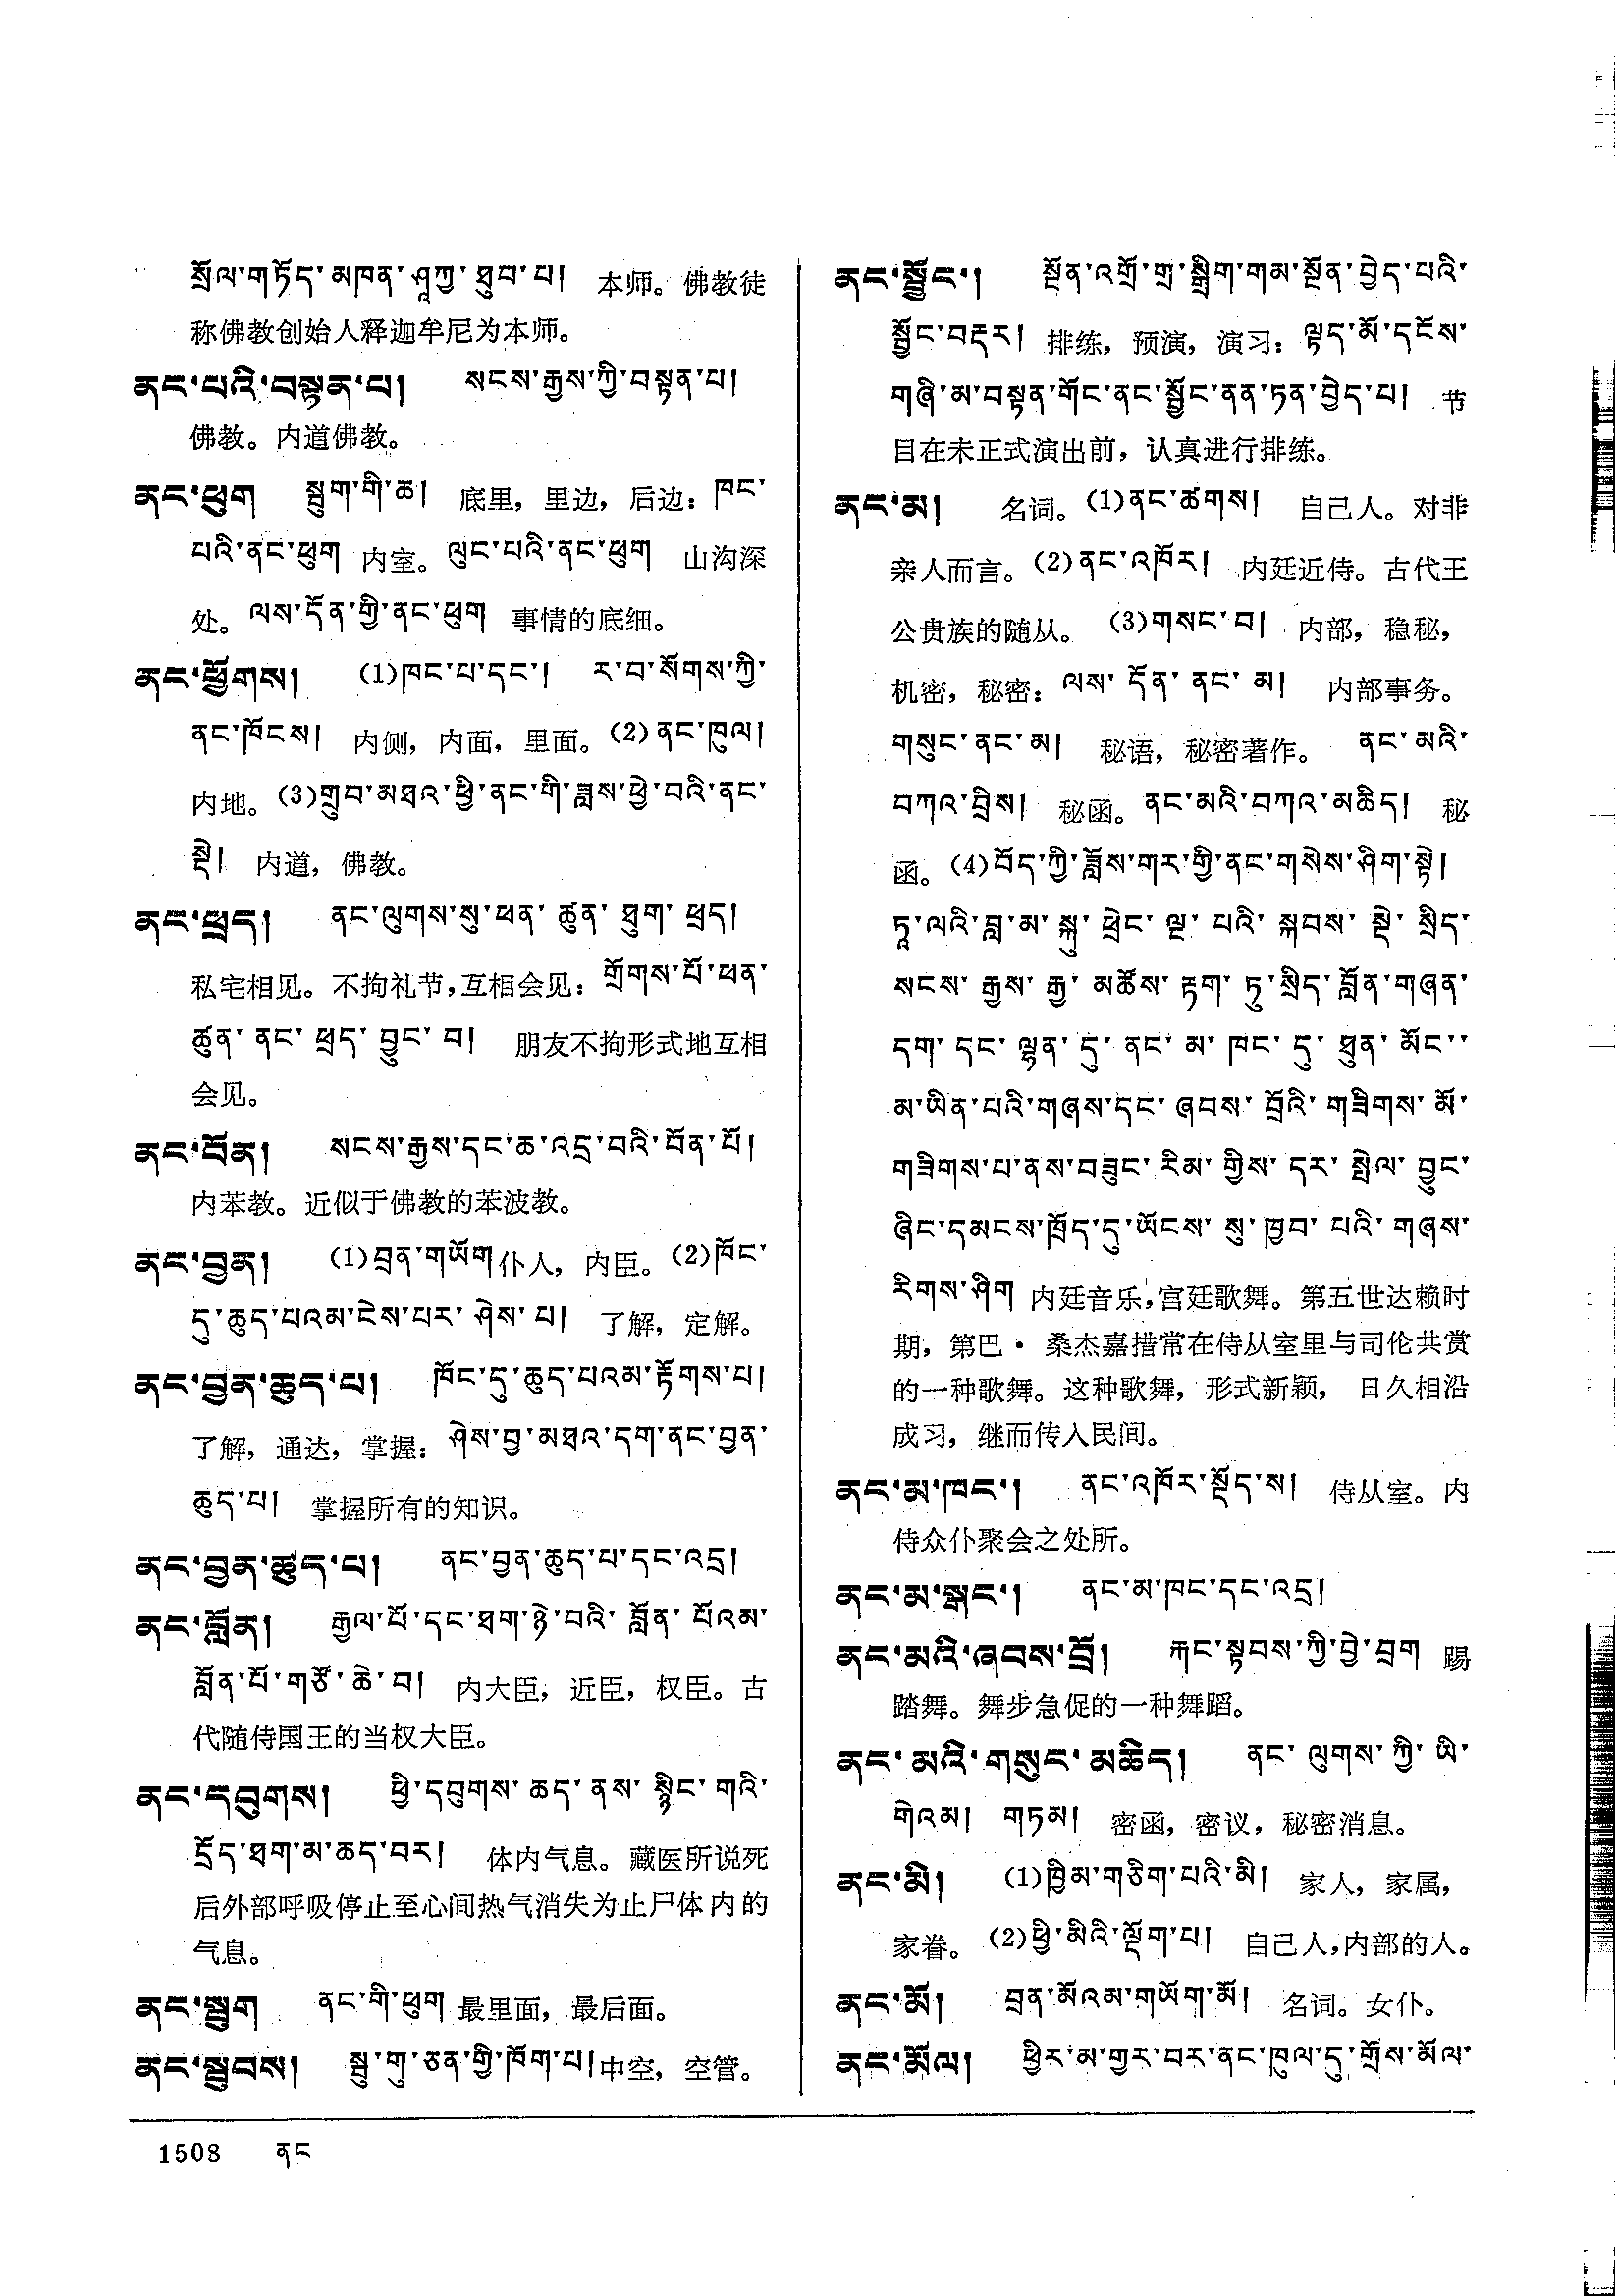 སྲོལ་གཏོད་མཁན་ཤཱཀྱ་ཐུབ་པ། 本师。佛教徒
称佛教创始人释迦牟尼为本师。
ནང་པའི་བསྟན་པ། སངས་རྒྱས་ཀྱི་བསྟན་པ།
佛教。内道佛教。
ནང་ཕུག སྦུག་གི་ཆ། 底里，里边，后边：ཁང་
པའི་ནང་ཕུག 内室。ལུང་པའི་ནང་ཕུག 山沟深
处。ལས་དོན་གྱི་ནང་ཕུག 事情的底细。
ནང་ཕྱོགས། (1)ཁང་པ་དང་། ར་བ་སོགས་ཀྱི་
ནང་ཁོངས། 内侧，内面，里面。(2)ནང་ཁུལ།
内地。(3)གྲུབ་མཐའ་ཕྱི་ནང་གི་ཟླས་ཕྱེ་བའི་ནང་
སྡེ། 内道，佛教。
ནང་ཕྲད། ནང་ལུགས་སུ་ཕན་ཚུན་ཐུག་ཕྲད།
私宅相见。不拘礼节，互相会见：གྲོགས་པོ་ཕན་
ཚུན་ནང་ཕྲད་བྱུང་བ། 朋友不拘形式地互相
会见。
ནང་བོན། སངས་རྒྱས་དང་ཆ་འདྲ་བའི་བོན་པོ།
内苯教。近似于佛教的苯波教。
ནང་བྱན། (1)བྲན་གཡོག 仆人，内臣。(2)ཁོང་
དུ་ཆུད་པའམ་ངེས་པར་ཤེས་པ། 了解，定解。
ནང་བྱན་ཆུད་པ། ཁོང་དུ་ཆུད་པའམ་རྟོགས་པ།
了解，通达，掌握：ཤེས་བྱ་མཐའ་དག་ནང་བྱན་
ཆུད་པ། 掌握所有的知识。
ནང་བྱན་ཚུད་པ། ནང་བྱན་ཆུད་པ་དང་འདྲ།
ནང་བློན། རྒྱལ་པོ་དང་ཐག་ཉེ་བའི་བློན་པོའམ་
བློན་པོ་གཙོ་ཆེ་བ། 内大臣，近臣，权臣。古
代随侍国王的当权大臣。
ནང་དབུགས། ཕྱི་དབུགས་ཆད་ནས་སྙིང་གའི་
དྲོད་ཐག་མ་ཆད་བར། 体内气息。藏医所说死
后外部呼吸停止至心间热气消失为止尸体内的
气息。
ནང་སྦུག ནང་གི་ཕུག 最里面，最后面。
ནང་སྦུབས། སྦུ་གུ་ཅན་གྱི་ཁོག་པ། 中空，空管。
ནང་སྦྱོང་། སྔོན་འགྲོ་གྲ་སྒྲིག་གམ་སྔོན་བྱེད་པའི་
སྦྱོང་བརྡར། 排练，预演，演习：ལྟད་མོ་དངོས་
གཞི་མ་བསྟན་གོང་ནང་སྦྱོང་ནན་ཏན་བྱེད་པ། 书
目在未正式演出前，认真进行排练。
ནང་མ། 名词。(1)ནང་ཚགས། 自己人。对非
亲人而言。(2)ནང་འཁོར། 内廷近侍。古代王
公贵族的随从。(3)གསང་བ། 内部，稳秘，
机密，秘密：ལས་དོན་ནང་མ། 内部事务。
གསུང་ནང་མ། 秘语，秘密著作。ནང་མའི་
བཀའ་བྲིས། 秘函。ནང་མའི་བཀའ་མཆིད། 秘
函。(4)བོད་ཀྱི་ཟློས་གར་གྱི་ནང་གསེས་ཤིག་སྟེ།
ཏཱ་ལའི་བླ་མ་སྐུ་ཕྲེང་ལྔ་པའི་སྐབས་སྡེ་སྲིད་
སངས་རྒྱས་རྒྱ་མཚོས་རྟག་ཏུ་སྲིད་བློན་གཞན་
དག་དང་ལྷན་དུ་ནང་མ་ཁང་དུ་ཐུན་མོང་་
མ་ཡིན་པའི་གཞས་དང་ཞབས་བྲོའི་གཟིགས་མོ་
གཟིགས་པ་ནས་བཟུང་རིམ་གྱིས་དར་སྤེལ་བྱུང་
ཞིང་དམངས་ཁྲོད་དུ་ཡོངས་སུ་ཁྱབ་པའི་གཞས་
རིགས་ཤིག 内廷音乐，宫廷歌舞。第五世达赖时
期，第巴·桑杰嘉措常在侍从室里与司伦共赏
的一种歌舞。这种歌舞，形式新颖，日久相沿
成习，继而传入民间。
ནང་མ་ཁང་། ནང་འཁོར་སྡོད་ས། 侍从室。内
侍众仆聚会之处所。
ནང་མ་སྒང་། ནང་མ་ཁང་དང་འདྲ།
ནང་མའི་ཞབས་བྲོ། རྐང་སྟབས་ཀྱི་བྱེ་བྲག 踢
踏舞。舞步急促的一种舞蹈。
ནང་མའི་གསུང་མཆིད། ནང་ལུགས་ཀྱི་ཡི་
གེའམ། གཏམ། 密函，密议，秘密消息。
ནང་མི། (1)ཁྱིམ་གཅིག་པའི་མི། 家人，家属，
家眷。(2)ཕྱི་མིའི་ལྡོག་པ། 自己人，内部的人。
ནང་མོ། བྲན་མོའམ་གཡོག་མོ། 名词。女仆。
ནང་མོལ། ཕྱིར་མ་གྱར་བར་ནང་ཁུལ་དུ་གྲོས་མོལ་
1508 ནང